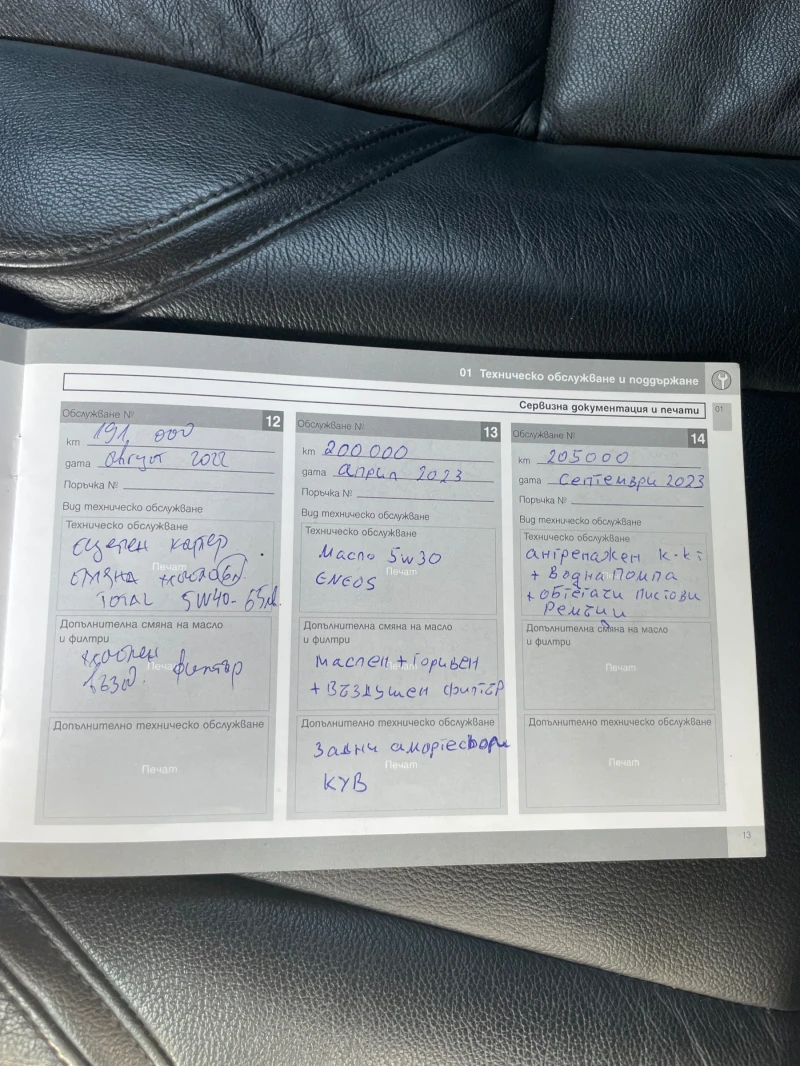 01 Техническо обслужване и поддържане
Сервизна документация и печати
01
Обслужване №
12
km 191,000
дата август 2022
Поръчка №
Вид техническо обслужване
Техническо обслужване
картер
Печат
смяна
TOTAL 5W40-
Допълнителна смяна на масло
и филтри
Печат
възд. филтър
Допълнително техническо обслужване
Печат
Обслужване №
13
km 200000
дата април 2023
Поръчка №
Вид техническо обслужване
Техническо обслужване
Масло 5w30
Печат
ENEOS
Допълнителна смяна на масло
и филтри
Маслен + Горивен
Печат
+ Въздушен филтър
Допълнително техническо обслужване
Задни амортесьори
Печат
KYB
Обслужване №
14
km 205000
дата септември 2023
Поръчка №
Вид техническо обслужване
Техническо обслужване
ангренажен к-кт
Печат
+ Водна Помпа
+ обтегачи пистови
Ремъци
Допълнителна смяна на масло
и филтри
Печат
Допълнително техническо обслужване
Печат
13